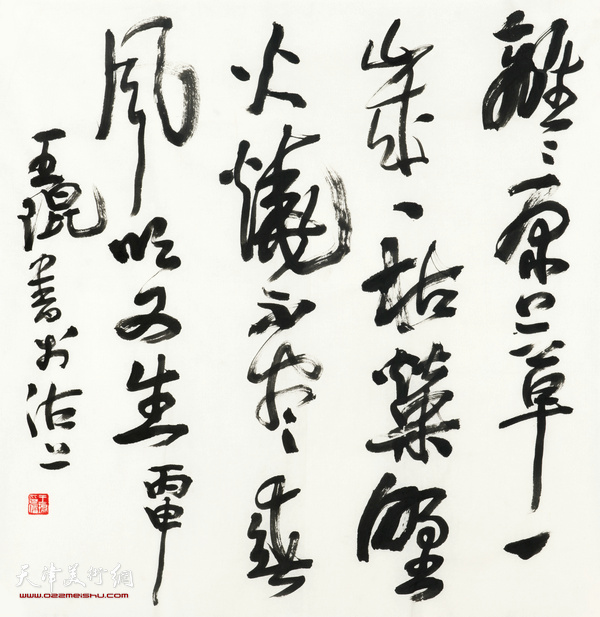 離〻原上草一
歲一枯榮野
火燒不尽春
風吹又生 丙申
王琨書於沽上
天津美術網
www.022meishu.com